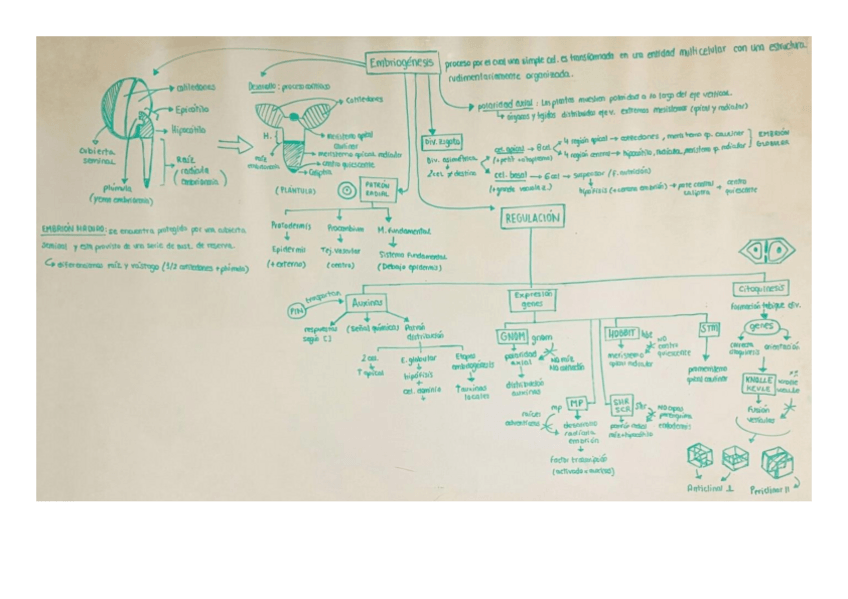 Embriogénesis
proceso por el cual una simple cel. es transformada en una entidad multicelular con una estructura
rudimentariamente organizada.
cotiledones
Epicótilo
Hipocótilo
Raíz
(radícula
embrionaria)
cubierta
seminal
plúmula
(yema embrionaria)
Desarrollo: proceso continuo
Cotiledones
H.
Meristema apical
caulinar
meristema apical radicular
centro quiescente
Caliptra
raíz
embrionaria
(PLÁNTULA)
polaridad axial: Las plantas muestran polaridad a lo largo del eje vertical.
órganos y tejidos distribuidos eje v. extremos meristemas (apical y radicular)
Div. Zigoto
Div. asimétrica
2 cel. ≠ destino
cel. apical → 8 cel
(+ petit + citoplasma)
4 región apical → cotiledones, meristema ap. caulinar
4 región central → hipocótilo, radícula, meristema ap. radicular
EMBRIÓN
GLOBULAR
cel. basal → 6 cel → suspensor (F. nutrición)
(+ grande vacuola z.)
hipófisis (+ cercana embrión) → parte central
caliptra
→ centro
quiescente
PATRÓN
RADIAL
Protodermis
Procambium
M. Fundamental
Epidermis
(+ externo)
Tej. Vascular
(centro)
Sistema Fundamental
(Debajo epidermis)
EMBRIÓN MADURO: se encuentra protegido por una cubierta
seminal y está provisto de una serie de sust. de reserva.
↳ diferenciamos raíz y vástago (1/2 cotiledones + plúmula)
REGULACIÓN
Auxinas
PIN
transportan
respuestas
según [ ]
(Señal química)
Patrón
distribución
2 cel.
↑ apical
E. globular
hipófisis
+
cel. dominio
Etapas
embriogénesis
↑ auxinas
locales
Expresión
genes
GNOM
gnom
polaridad
axial
NO raíz
NO cotiledón
distribución
auxinas
MP
mp
raíces
adventicias
desarrollo
radícula
embrión
Factor transcripción
(activado x auxinas)
HOBBIT
hbt
meristemo
apical radicular
NO
centro
quiescente
SHR
SCR
shr
patrón radial
raíz + hipocótilo
NO capas
parénquima
endodermis
STM
protomeristemo
apical caulinar
Citoquinesis
Formación tabique div.
genes
correcta
citoquinesis
orientación
KNOLLE
KEULE
knolle
keule
Fusión
vesículas
Anticlinal ⊥
Periclinal //